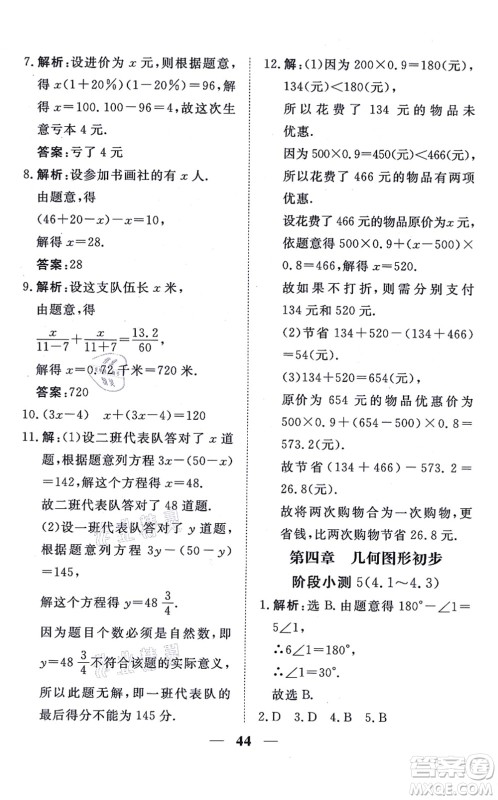 7. 解析:设进价为 x 元,则根据题意,
得 x(1+20%)=96,解得 x
=100.100-96=4,故这次生
意亏本 4 元.
答案:亏了 4 元
8. 解析:设参加书画社的有 x 人.
由题意,得
(46+20-x)-x=10,
解得 x=28.
答案:28
9. 解析:设这支队伍长 x 米.
由题意,得
x/(11-7)+x/(11+7)=13.2/60,
解得 x=0.72 千米=720 米.
答案:720
10. (3x-4) x+(3x-4)=120
11. 解:(1)设二班代表队答对了 x 道
题,根据题意列方程 3x-(50-x)
=142,解这个方程得 x=48.
故二班代表队答对了 48 道题.
(2)设一班代表队答对了 y 道题,
根据题意列方程 3y-(50-y)=
145,
解这个方程得 y=48 3/4.
因为题目个数必须是自然数,即
y=48 3/4 不符合该题的实际意义,
所以此方程无解.即一班代表队的
得分不可能为 145 分.
12. 解:(1)因为 200×0.9=180(元),
134(元)<180(元),
所以花费了 134 元的物品未
优惠.
因为 500×0.9=450(元)<466(元),
所以花费了 466 元的物品有两项
优惠.
设花费了 466 元的物品原价为 x 元,
依题意得 500×0.9+(x-500)×
0.8=466,解得 x=520.
故如果不打折,则分别支付
134 元和 520 元.
(2)节省 134+520-134-466=
54(元).
(3)134+520=654(元),
原价为 654 元的物品优惠后应支
付 500×0.9+(654-500)×0.8=
573.2(元).
故节省 134+466-573.2=
26.8(元).
故将两次购物改为一次购物,更
省钱,比两次购物节省 26.8 元.
第四章 几何图形初步
阶段小测 5(4.1~4.3)
1. 解析:选 B. 由题意得 180°-∠1=
5∠1,
∴6∠1=180°,
∴∠1=30°.
故选 B.
2. D 3. D 4. B 5. B
44